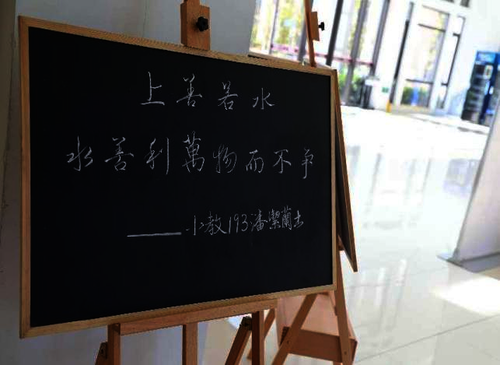 上善若水
水善利萬物而不争
——小教193潘紫蘭书